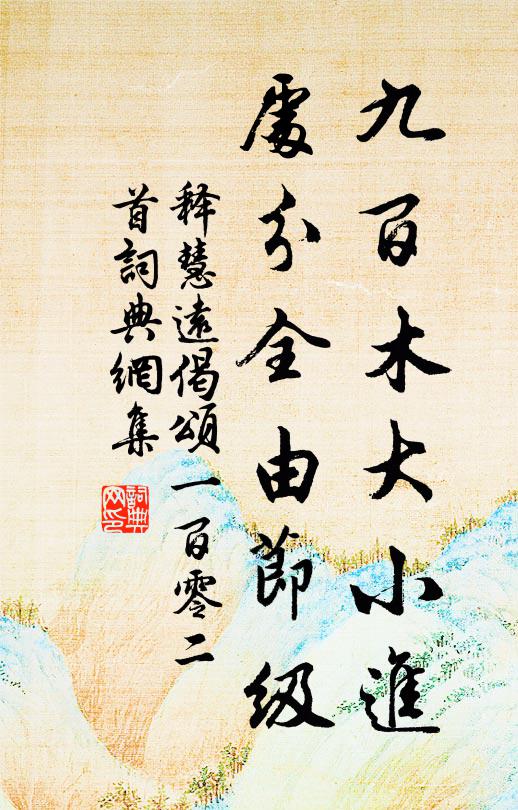 九百木大小進
處分全由節級
释慧遠偈頌一百零二
首詞典網集
詞典
网印